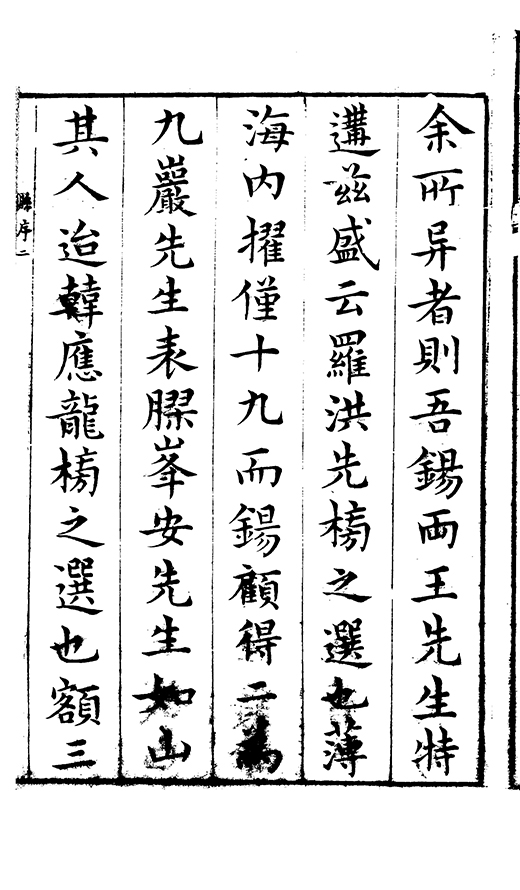 余所异者則吾錫両王先生特
遘茲盛云羅洪先榜之選也薄
海内擢僅十九而錫顧得二焉
九巖先生表膠峯安先生如山
其人迨韓應龍榜之選也額三
序二